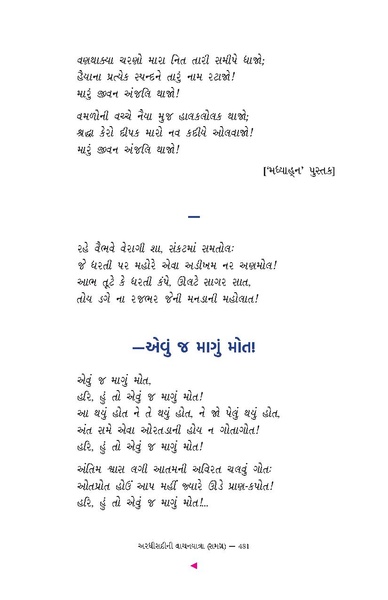 વણથાક્યા ચરણો મારા નિત તારી સમીપે ધાજો;
હૈયાના પ્રત્યેક સ્પન્દને તારું નામ રટાજો!
મારું જીવન અંજલિ થાજો!
વમળોની વચ્ચે નૈયા મુજ હાલકલોલક થાજો;
શ્રદ્ધા કેરો દીપક મારો નવ કદીયે ઓલવાજો!
મારું જીવન અંજલિ થાજો!
[‘મધ્યાહ્ન’ પુસ્તક]
—
રહે વૈભવે વેરાગી શા, સંકટમાં સમતોલઃ
જે ધરતી પર મહોરે એવા અડીખમ નર અણમોલ!
આભ તૂટે કે ધરતી કંપે, ઊલટે સાગર સાત,
તોય ડગે ના રજભર જેની મનડાની મહોલાત!
—એવું જ માગું મોત!
એવું જ માગું મોત,
હરિ, હું તો એવું જ માગું મોત!
આ થયું હોત ને તે થયું હોત, ને જો પેલું થયું હોત,
અંત સમે એવા ઓરતડાની હોય ન ગોતાગોત!
હરિ, હું તો એવું જ માગું મોત!
અંતિમ શ્વાસ લગી આતમની અવિરત ચલવું ગોતઃ
ઓતપ્રોત હોઉં આપ મહીં જ્યારે ઊડે પ્રાણ-કપોત!
હરિ, હું તો એવું જ માગું મોત!...
અરધીસદીની વાચનયાત્રા (સમગ્ર) — ૭૬૧